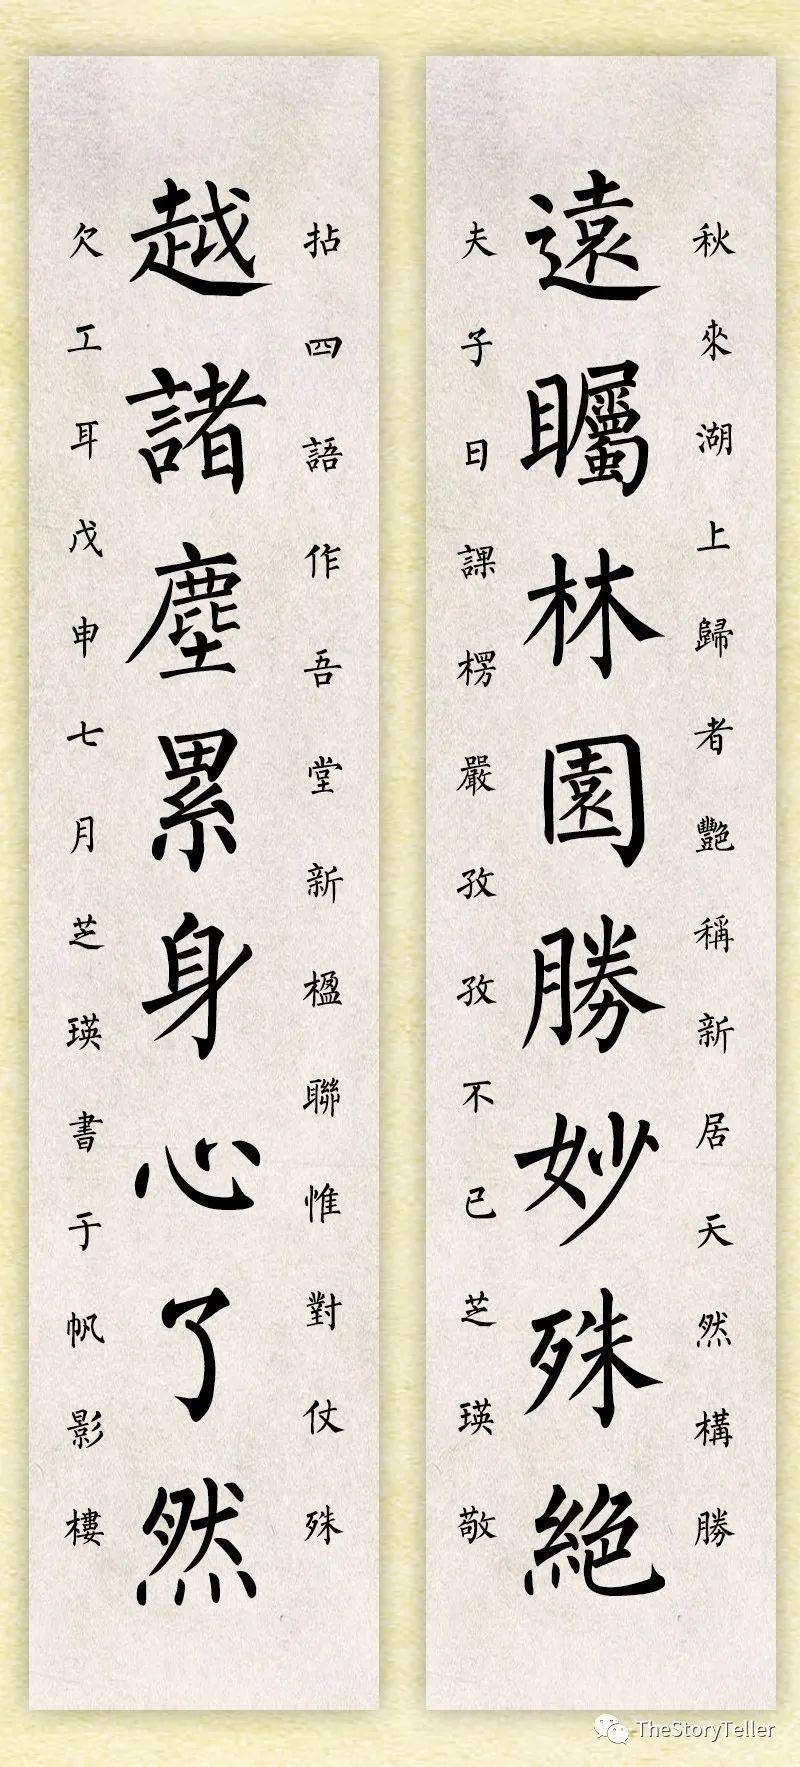 秋來湖上歸者艷稱新居天然構勝
遠矚林園勝妙殊絕
夫子日課楞嚴孜孜不已芝瑛敬
拈四語作吾堂新楹聯惟對仗殊
越諸塵累身心了然
欠工耳戊申七月芝瑛書于帆影樓
TheStoryTeller